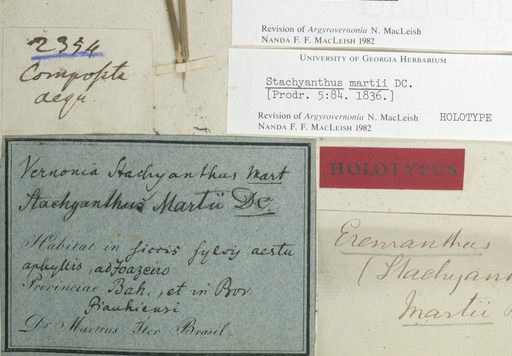 Revision of Argyrovernonia N. MacLeish
NANDA F. F. MACLEISH 1982
UNIVERSITY OF GEORGIA HERBARIUM
Stachyanthus martii DC.
[Prodr. 5:84. 1836.]
Revision of Argyrovernonia N. MacLeish HOLOTYPE
NANDA F. F. MACLEISH 1982
2394
Composita
aequ.
HOLOTYPUS
Vernonia Stachyanthus Mart
Stachyanthus Martii DC.
Habitat in siccis sylvis aestu
aphyllis, ad Joazeiro
Provinciae Bah., et in Prov.
Piauhiensi
Dr Martius Iter Brasil.
Eremanthus
(Stachyan
Martii